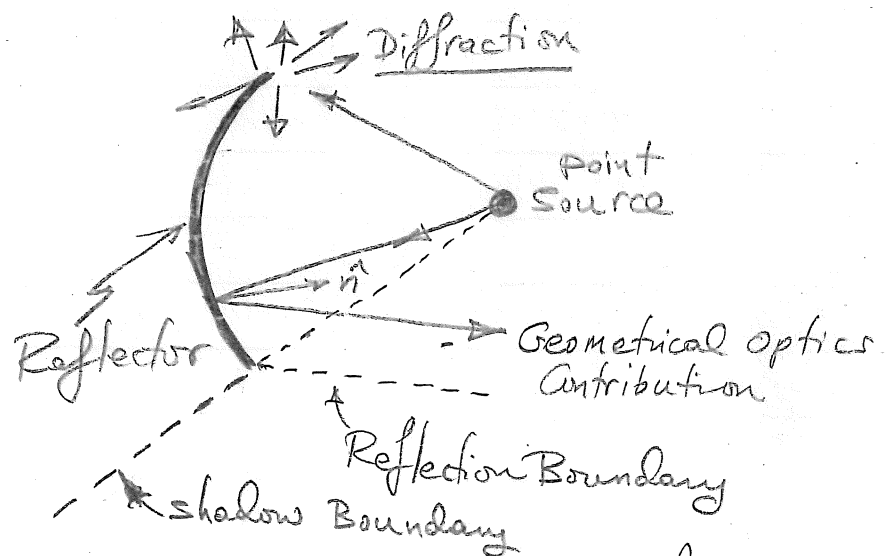 Diffraction
Point
Source
n̂
Reflector
Geometrical Optics
Contribution
Reflection Boundary
Shadow Boundary